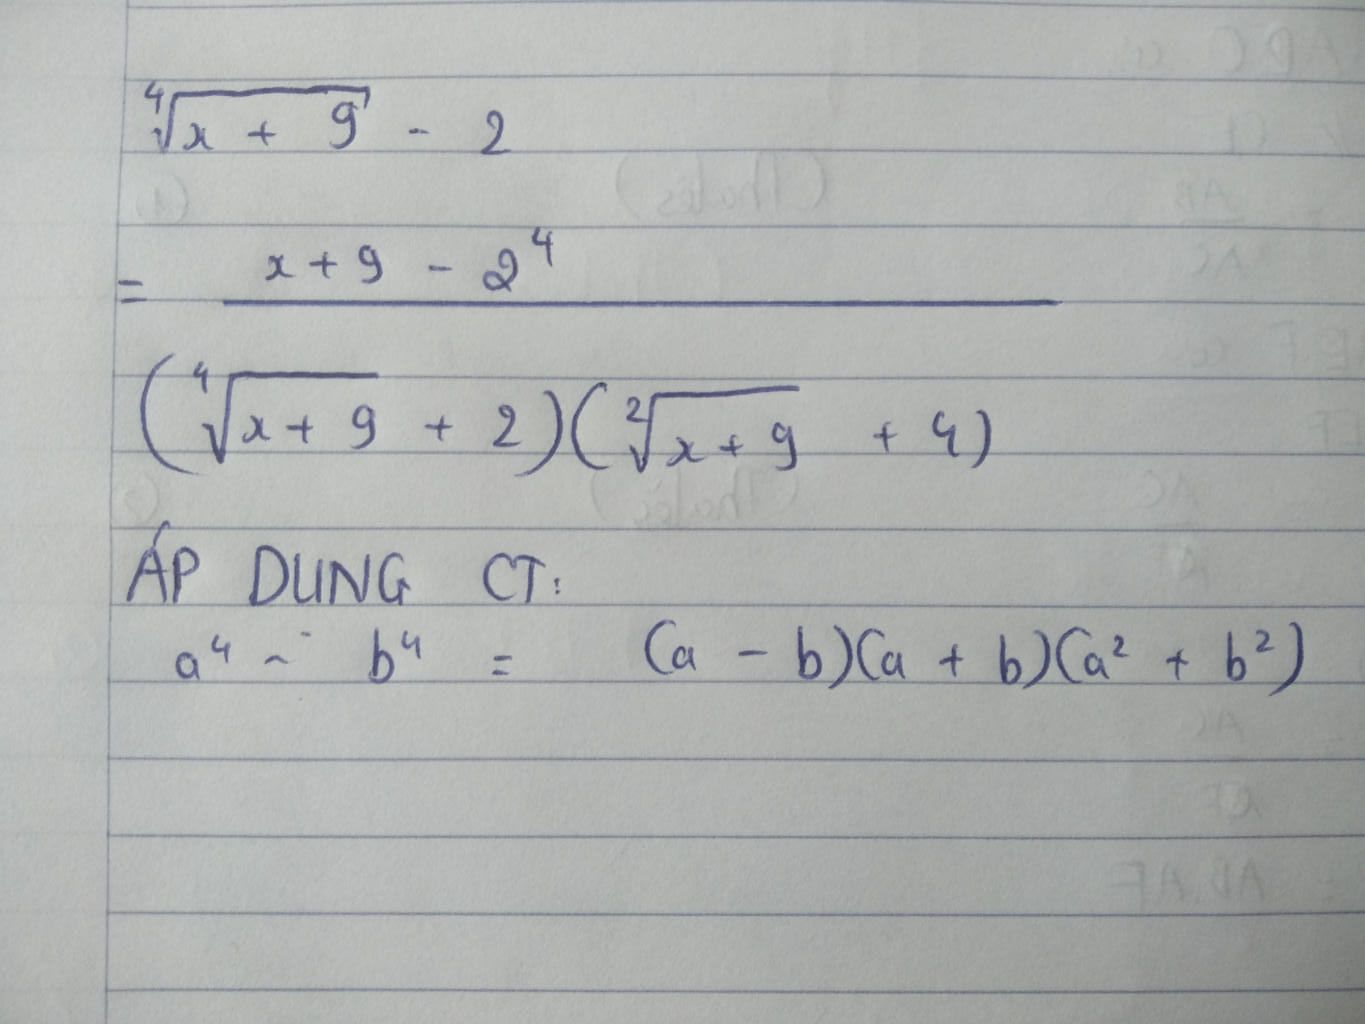 ∜(x + 9) - 2
= (x + 9 - 2⁴) / ((∜(x + 9) + 2)(²√(x + 9) + 4))
ÁP DUNG CT:
a⁴ - b⁴ = (a - b)(a + b)(a² + b²)